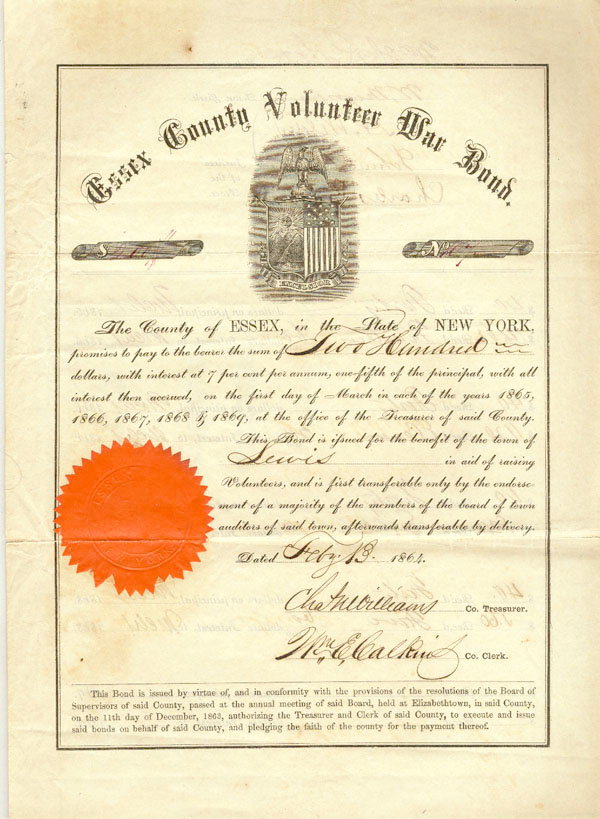 Essex County Volunteer War Bond.
EXCELSIOR
$
No.
The County of ESSEX, in the State of NEW YORK,
promises to pay to the bearer the sum of Two Hundred
dollars, with interest at 7 per cent per annum, one-fifth of the principal, with all
interest then accrued, on the first day of March in each of the years 1865,
1866, 1867, 1868 & 1869, at the office of the Treasurer of said County.
This Bond is issued for the benefit of the town of
Lewis in aid of raising
Volunteers, and is first transferable only by the endorse-
ment of a majority of the members of the board of town
auditors of said town, afterwards transferable by delivery.
Dated Feby. 13. 1864.
Chas N Williams Co. Treasurer.
Wm. E. Calkins Co. Clerk.
This Bond is issued by virtue of, and in conformity with the provisions of the resolutions of the Board of
Supervisors of said County, passed at the annual meeting of said Board, held at Elizabethtown, in said County,
on the 11th day of December, 1863, authorizing the Treasurer and Clerk of said County, to execute and issue
said bonds on behalf of said County, and pledging the faith of the county for the payment thereof.